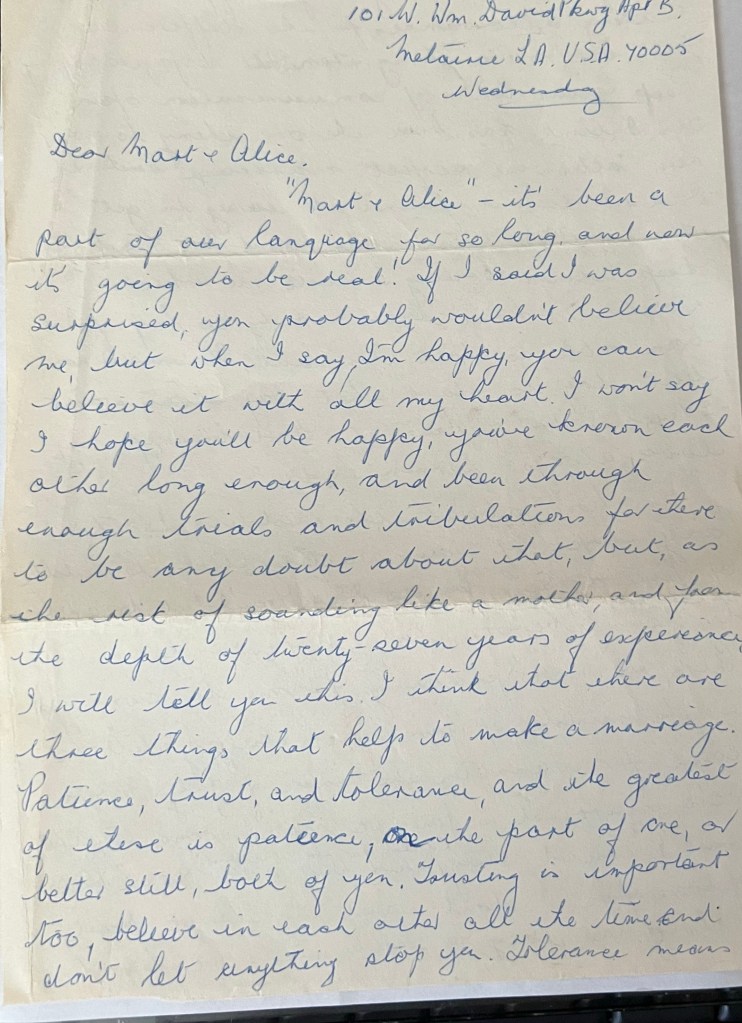 101 W. Wm. David Pkwy Apt B.
Metairie LA. U.S.A. 70005
Wednesday
Dear Mart & Alice.
"Mart & Alice" – its' been a
part of our language for so long, and now
it's going to be real! If I said I was
surprised, you probably wouldn't believe
me, but when I say, I'm happy, you can
believe it with all my heart. I won't say
I hope you'll be happy, you've known each
other long enough, and been through
enough trials and tribulations for there
to be any doubt about that, but, as
the risk of sounding like a mother, and from
the depth of twenty-seven years of experience
I will tell you this. I think that there are
three things that help to make a marriage.
Patience, trust, and tolerance, and the greatest
of these is patience, on the part of one, or
better still, both of you. Trusting is important
too, believe in each other all the time and
don't let anything stop you. Tolerance means